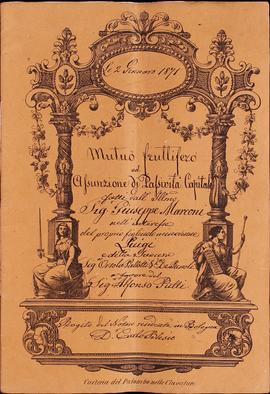 2 Gennaro 1871
Mutuo fruttifero
ed
Assunzione di Passività Capitale
fatti dall'Illmo
Sig Giuseppe Marconi
nell'interesse
del proprio figlio minorenne
Luigi
e della
Sig
a favore del
Sig Alfonso Pulli
Rogito del Notaro residente in Bologna
D.
Cartoria del Palombo nelle Clavature